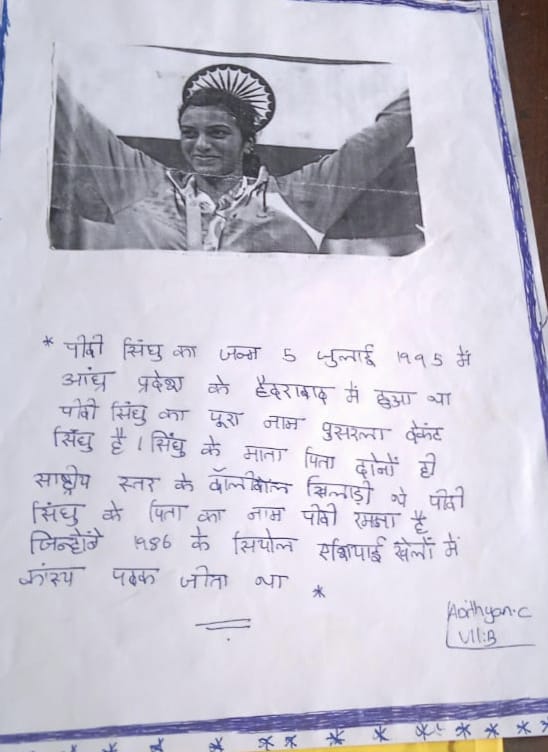 * पीवी सिंघु का जन्म 5 जुलाई 1995 में
आंध्र प्रदेश के हैदराबाद में हुआ था
पीवी सिंघु का पूरा नाम पुसरला वेंकट
सिंघु है । सिंघु के माता पिता दोनों ही
राष्ट्रीय स्तर के वॉलीबॉल खिलाड़ी थे पीवी
सिंघु के पिता का नाम पीवी रमना है
जिन्होंने 1986 के सियोल एशियाई खेलों में
कांस्य पदक जीता था *
Adithyan.C
VII:B